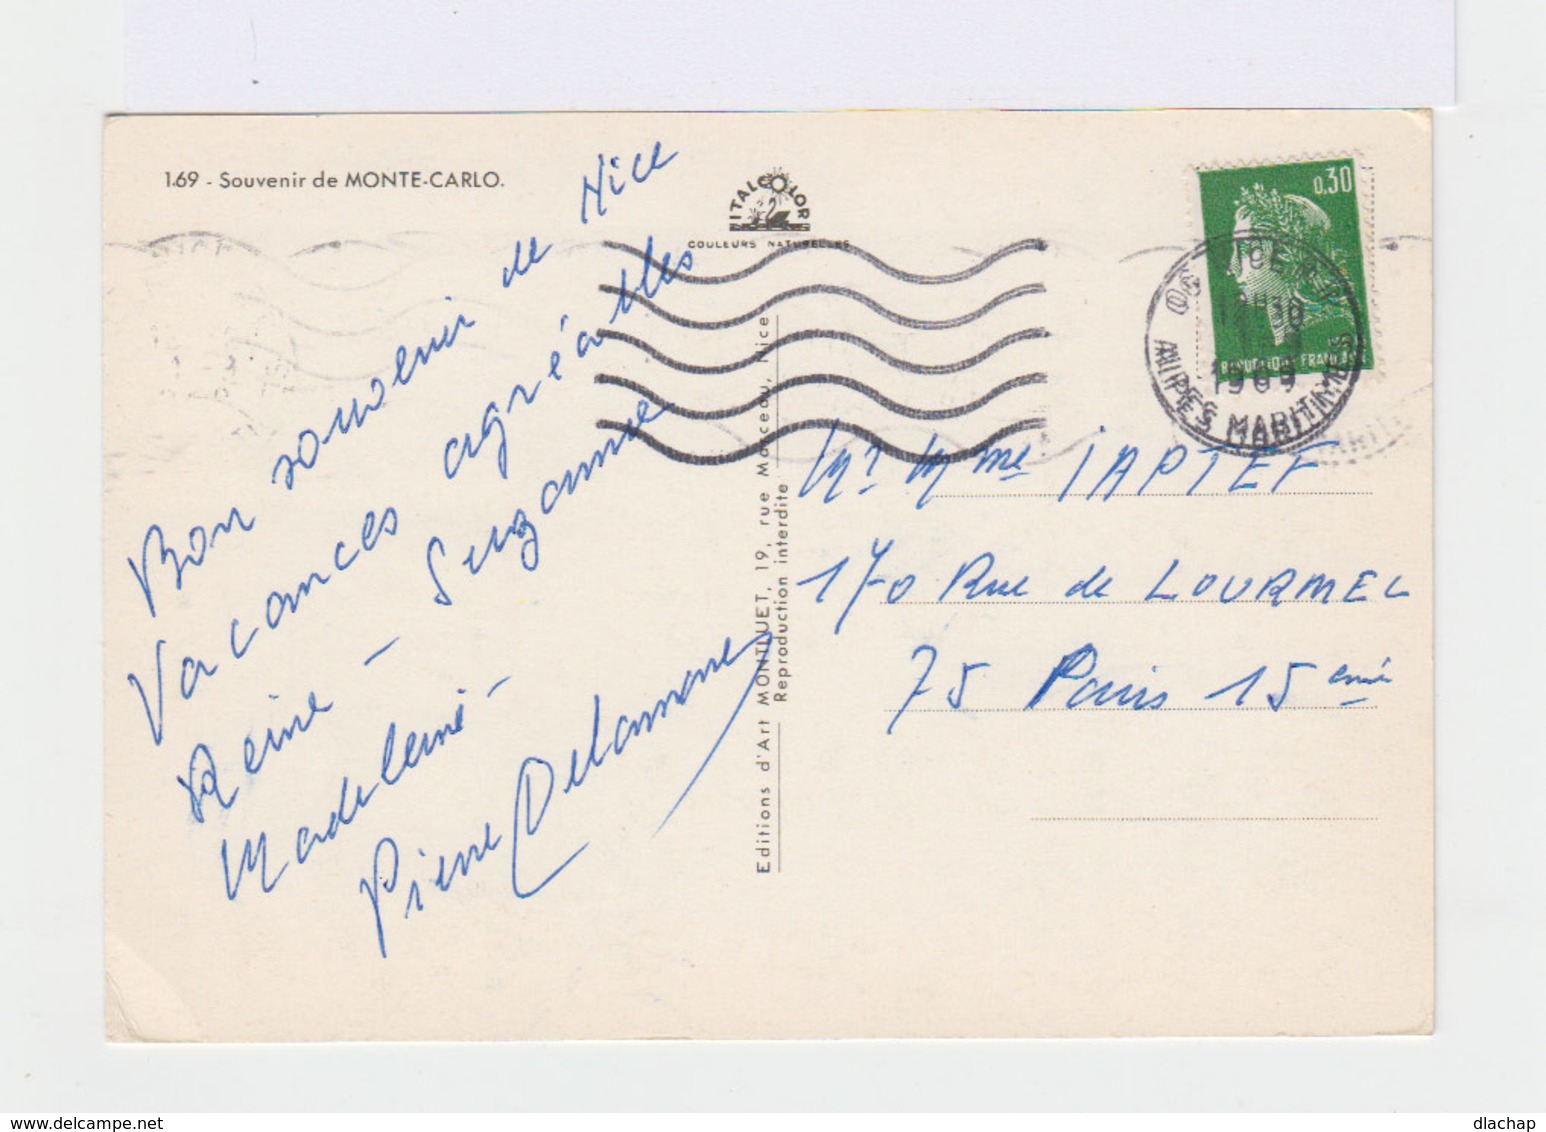 1.69 - Souvenir de MONTE-CARLO.
ITALCOLOR
COULEURS NATURELLES
Bon souvenir de Nice
Vacances agréables
Reine - Suzanne
Madeleine -
Pierre Delamare
Editions d'Art MONTLUET, 19, rue Marceau, Nice
Reproduction interdite
0,30
REPUBLIQUE FRANCAISE
1969
ALPES MARITIMES
Mr Mme IAPTEF
170 Rue de LOURMEL
75 Paris 15 eme
dlachap